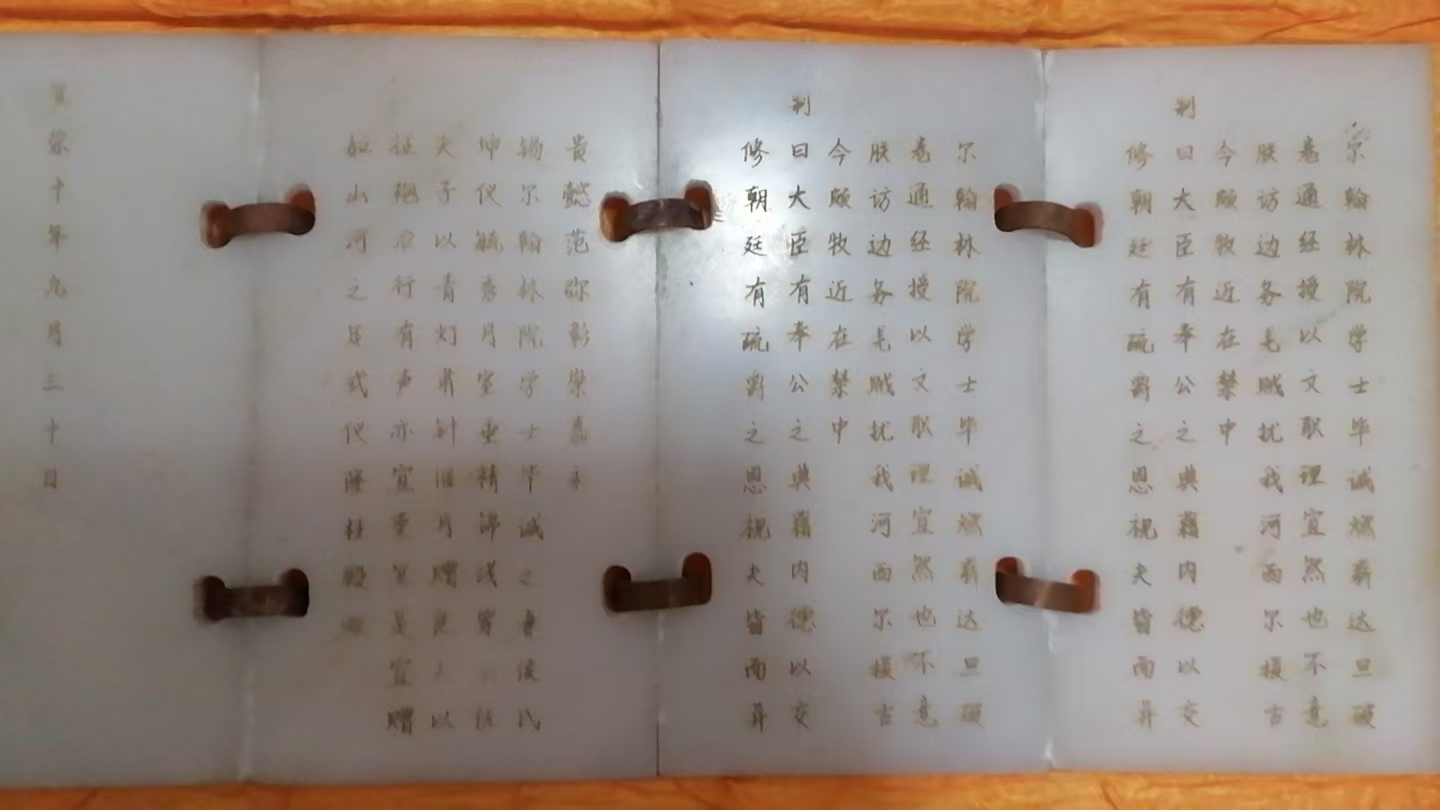 尔翰林院学士毕诚燃薪达旦硕
卷通经授以文职理宜然也不意
朕访边务羌贼扰我河西尔援古
今颇牧近在禁中
制曰大臣有奉公之典藉内德以交
修朝廷有疏爵之恩视夫皆而异
尔翰林院学士毕诚燃薪达旦硕
卷通经授以文职理宜然也不意
朕访边务羌贼扰我河西尔援古
今颇牧近在禁中
制曰大臣有奉公之典藉内德以交
修朝廷有疏爵之恩视夫皆而异
贵懿范弥彰崇嘉永
锡尔翰林院学士毕诚之妻侯氏
坤仪毓秀月室垂精
夫子以青灯肃针月赠良人以
征袍衣行有声亦宜荣宜是宜赠
如山河之足式仪隆杜
十年九月三十日